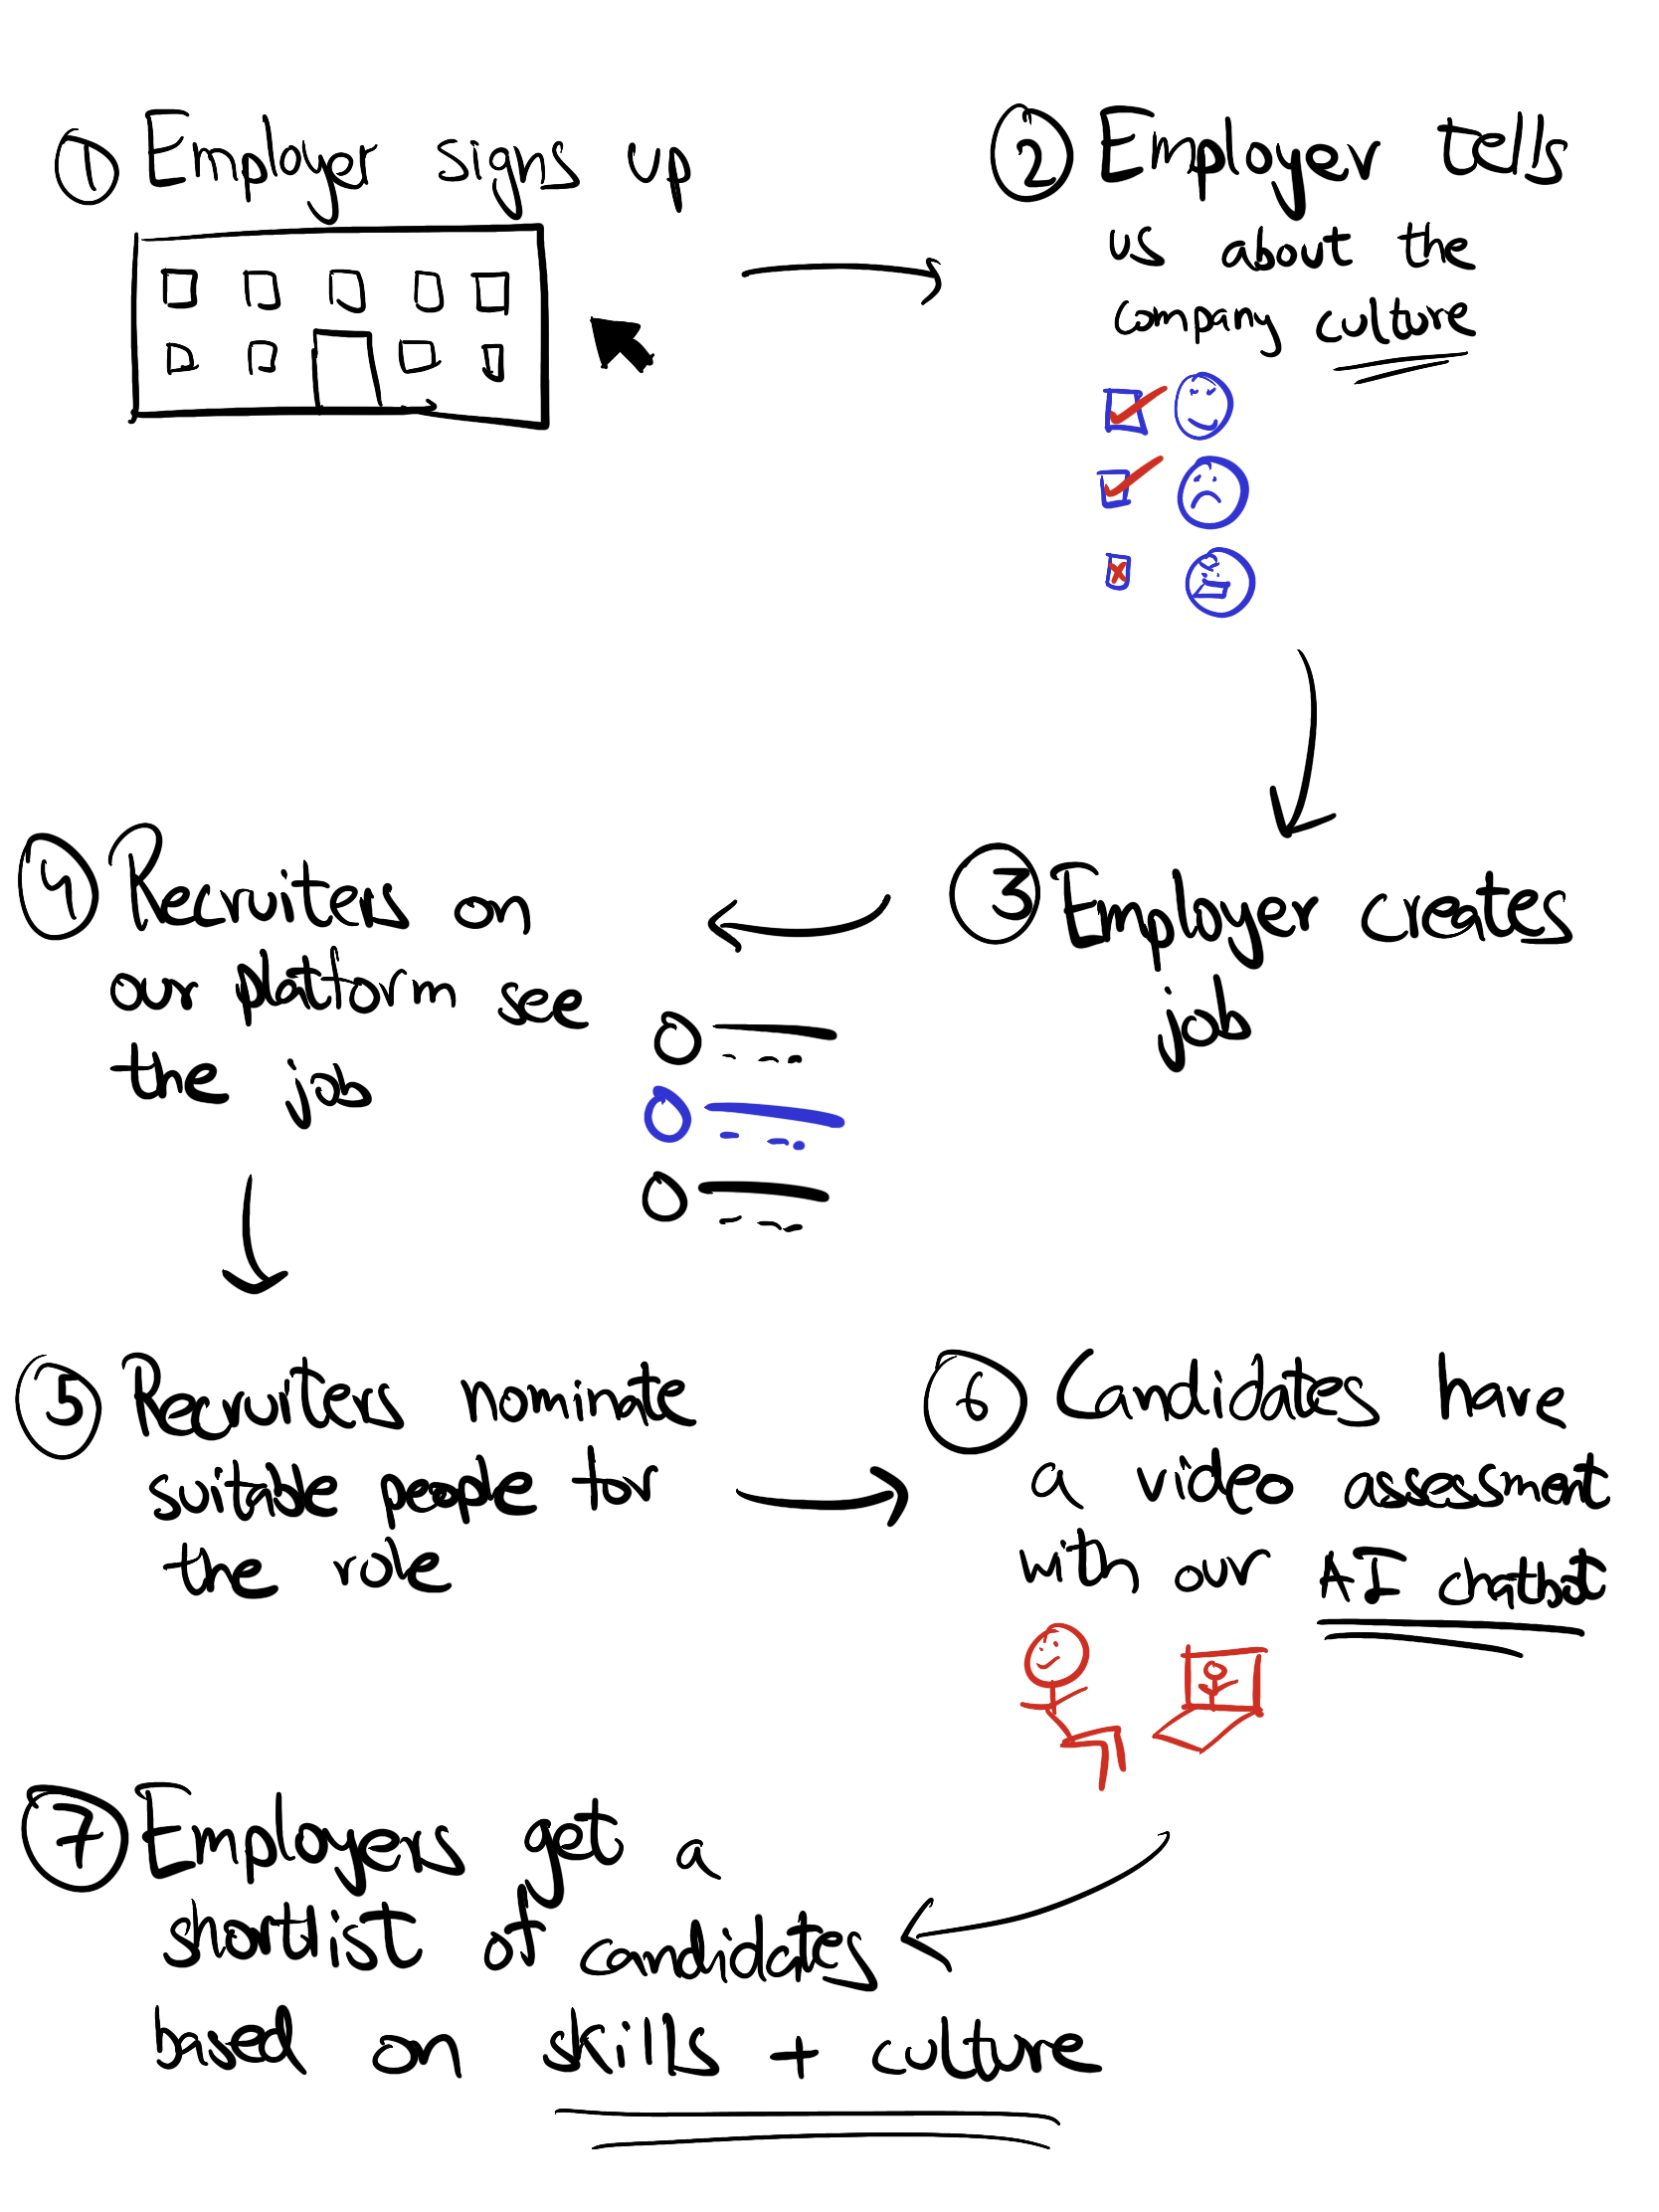 1 Employer signs up
2 Employer tells
us about the
company culture
3 Employer creates
job
4 Recruiters on
our platform see
the job
5 Recruiters nominate
suitable people for
the role
6 Candidates have
a video assessment
with our AI chatbot
7 Employers get a
shortlist of candidates
based on skills + culture